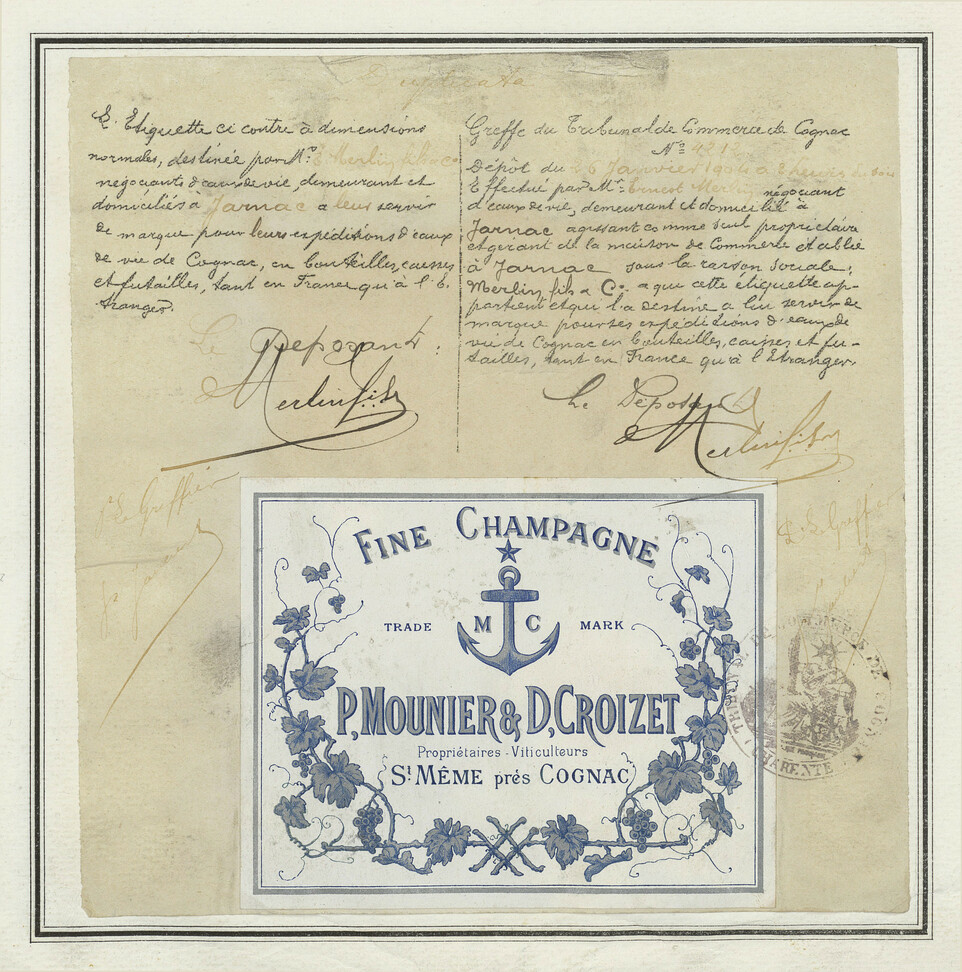 Duplicata
L'Etiquette ci contre à dimensions
normales, destinée par Mr. E. Merlin fils & Co
négociants d'eaux de vie, demeurant et
domiciliés à Jarnac a leur servir
de marque pour leurs expéditions d'eaux
de vie de Cognac, en bouteilles, caisses
et futailles, tant en France qu'à l'é-
tranger.
Le Déposant.
Merlin fils
Le Greffier
Greffe du Tribunal de Commerce de Cognac
No 4212
Dépôt du 26 Janvier 1904 à heures du soir
Effectué par Mr. Ernest Merlin négociant
d'eaux de vie, demeurant et domicilié à
Jarnac agissant comme seul propriétaire
et gérant de la maison de Commerce établie
à Jarnac sous la raison sociale;
Merlin fils & Co. a qui cette étiquette ap-
partient et qui l'a destine a lui servir de
marque pour ses expéditions d'eaux de
vie de Cognac en bouteilles, caisses et fu-
tailles, tant en France qu'à l'Etranger.
Le Déposant
Merlin fils
Le Greffier
FINE CHAMPAGNE
TRADE M C MARK
P. MOUNIER & D. CROIZET
Propriétaires - Viticulteurs
St MÊME près COGNAC
TRIBUNAL DE COMMERCE DE COGNAC
CHARENTE